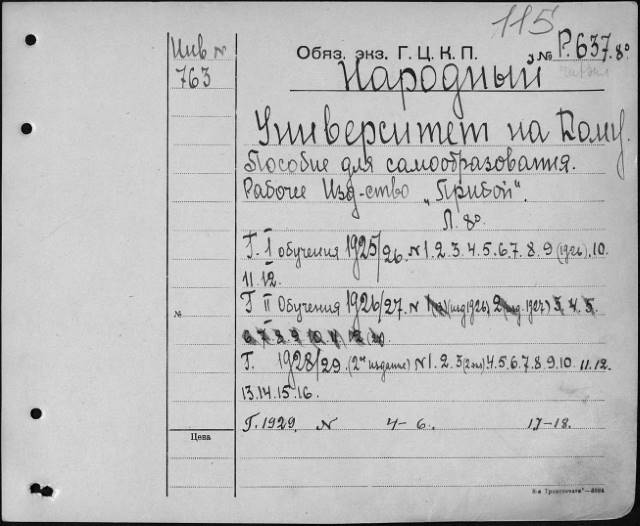 115
Инв №
763
Обяз. экз. Г. Ц. К. П.
№ Р.637. 8°
Народный
Университет на Дому.
Пособие для самообразования.
Рабочее Изд-ство „Прибой".
Л. 8°
Г. I обучения 1925/26. N 1. 2. 3. 4. 5. 6. 7. 8. 9 (1926), 10.
11. 12.
Г II Обучения 1926/27. N (изд 1926), 2 1927) 3. 4. 5.
6. 7. 8. 9. 10. 11. 12
Г. 1928/29. (2ое издание) N 1. 2. 3 (2 эк) 4. 5. 6. 7. 8. 9. 10. 11. 12.
13. 14. 15. 16.
Г. 1929. N 4 - 6. 17 - 18.
№
Цена